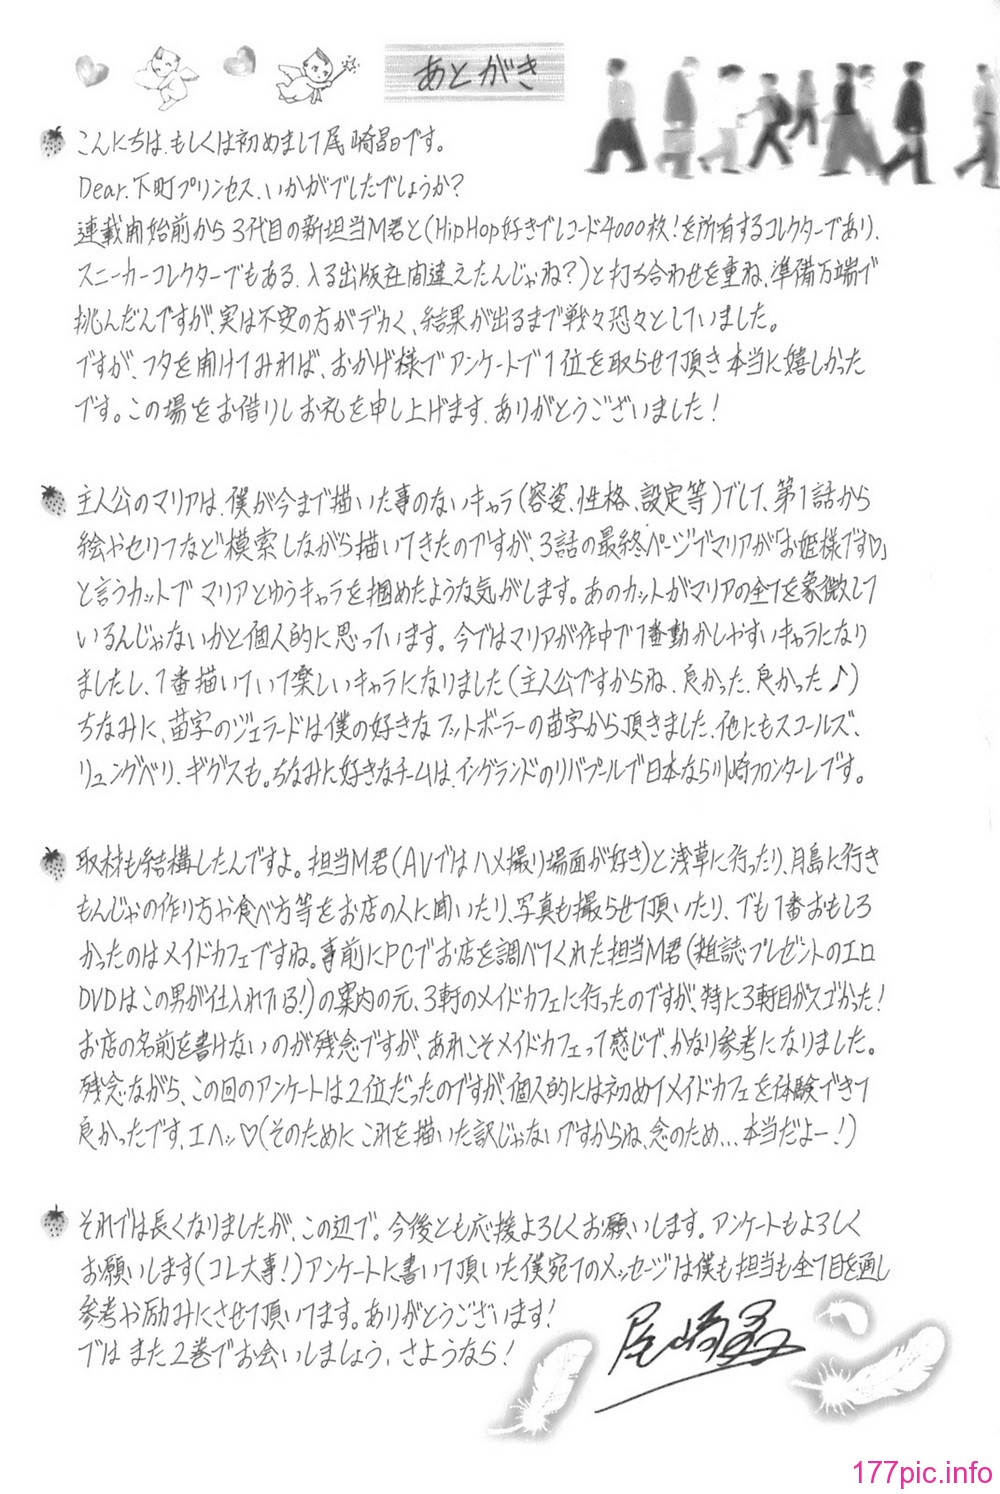 あとがき
こんにちは、もしくは初めまして尾崎晶です。
Dear.下町プリンセス、いかがでしたでしょうか?
連載開始前から3代目の新担当M君と(HipHop好きでレコード4000枚!を所有するコレクターであり、
スニーカーコレクターでもある、入る出版社間違えたんじゃね?)と打ち合わせを重ね、準備万端で
挑んだんですが、実は不安の方がデカく、結果が出るまで戦々恐々としていました。
ですが、フタを開けてみれば、おかげ様でアンケートで1位を取らせて頂き本当に嬉しかった
です。この場をお借りしお礼を申し上げます、ありがとうございました!
主人公のマリアは、僕が今まで描いた事のないキャラ(容姿、性格、設定等)でして、第1話から
絵やセリフなど模索しながら描いてきたのですが、3話の最終ページでマリアが「お姫様です♡」
と言うカットでマリアとゆうキャラを掴めたような気がします。あのカットがマリアの全てを象徴して
いるんじゃないかと個人的に思っています。今ではマリアが作中で1番動かしやすいキャラになり
ましたし、1番描いていて楽しいキャラになりました(主人公ですからね、良かった、良かった♪)
ちなみに、苗字のジェラードは僕の好きなフットボーラーの苗字から頂きました、他にもスコールズ、
リュングベリ、ギグスも。ちなみに好きなチームは、イングランドのリバプールで日本なら川崎フロンターレです。
取材も結構したんですよ。担当M君(AVではハメ撮り場面が好き)と浅草に行ったり、月島に行き
もんじゃの作り方や食べ方等をお店の人に聞いたり、写真も撮らせて頂いたり、でも1番おもしろ
かったのはメイドカフェですね。事前にPCでお店を調べてくれた担当M君(雑誌プレゼントのエロ
DVDはこの男が仕入れている!)の案内の元、3軒のメイドカフェに行ったのですが、特に3軒目がスゴかった!
お店の名前を書けないのが残念ですが、あれこそメイドカフェって感じで、かなり参考になりました。
残念ながら、この回のアンケートは2位だったのですが、個人的には初めてメイドカフェを体験できて
良かったです、エヘッ♡(そのためにこれを描いた訳じゃないですからね、念のため…本当だよー!)
それでは長くなりましたが、この辺で。今後とも応援よろしくお願いします。アンケートもよろしく
お願いします(コレ大事!)アンケートに書いて頂いた僕宛てのメッセージは僕も担当も全て目を通し
参考や励みにさせて頂いてます。ありがとうございます!
ではまた2巻でお会いしましょう、さようなら!
尾崎晶
177pic.info